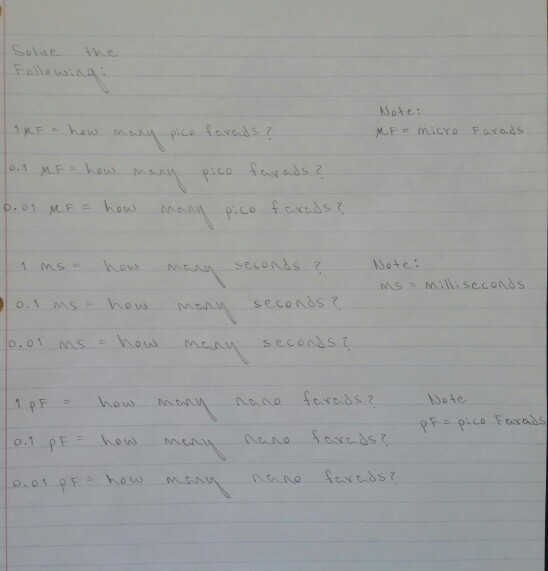 Solve the
Following:
Note:
1 μF = how many pico farads?
μF = micro Farads
0.1 μF = how many pico farads?
0.01 μF = how many pico farads?
1 ms = how many seconds?
Note:
ms = milliseconds
0.1 ms = how many seconds?
0.01 ms = how many seconds?
1 pF = how many nano farads?
Note
pF = pico Farads
0.1 pF = how many nano farads?
0.01 pF = how many nano farads?